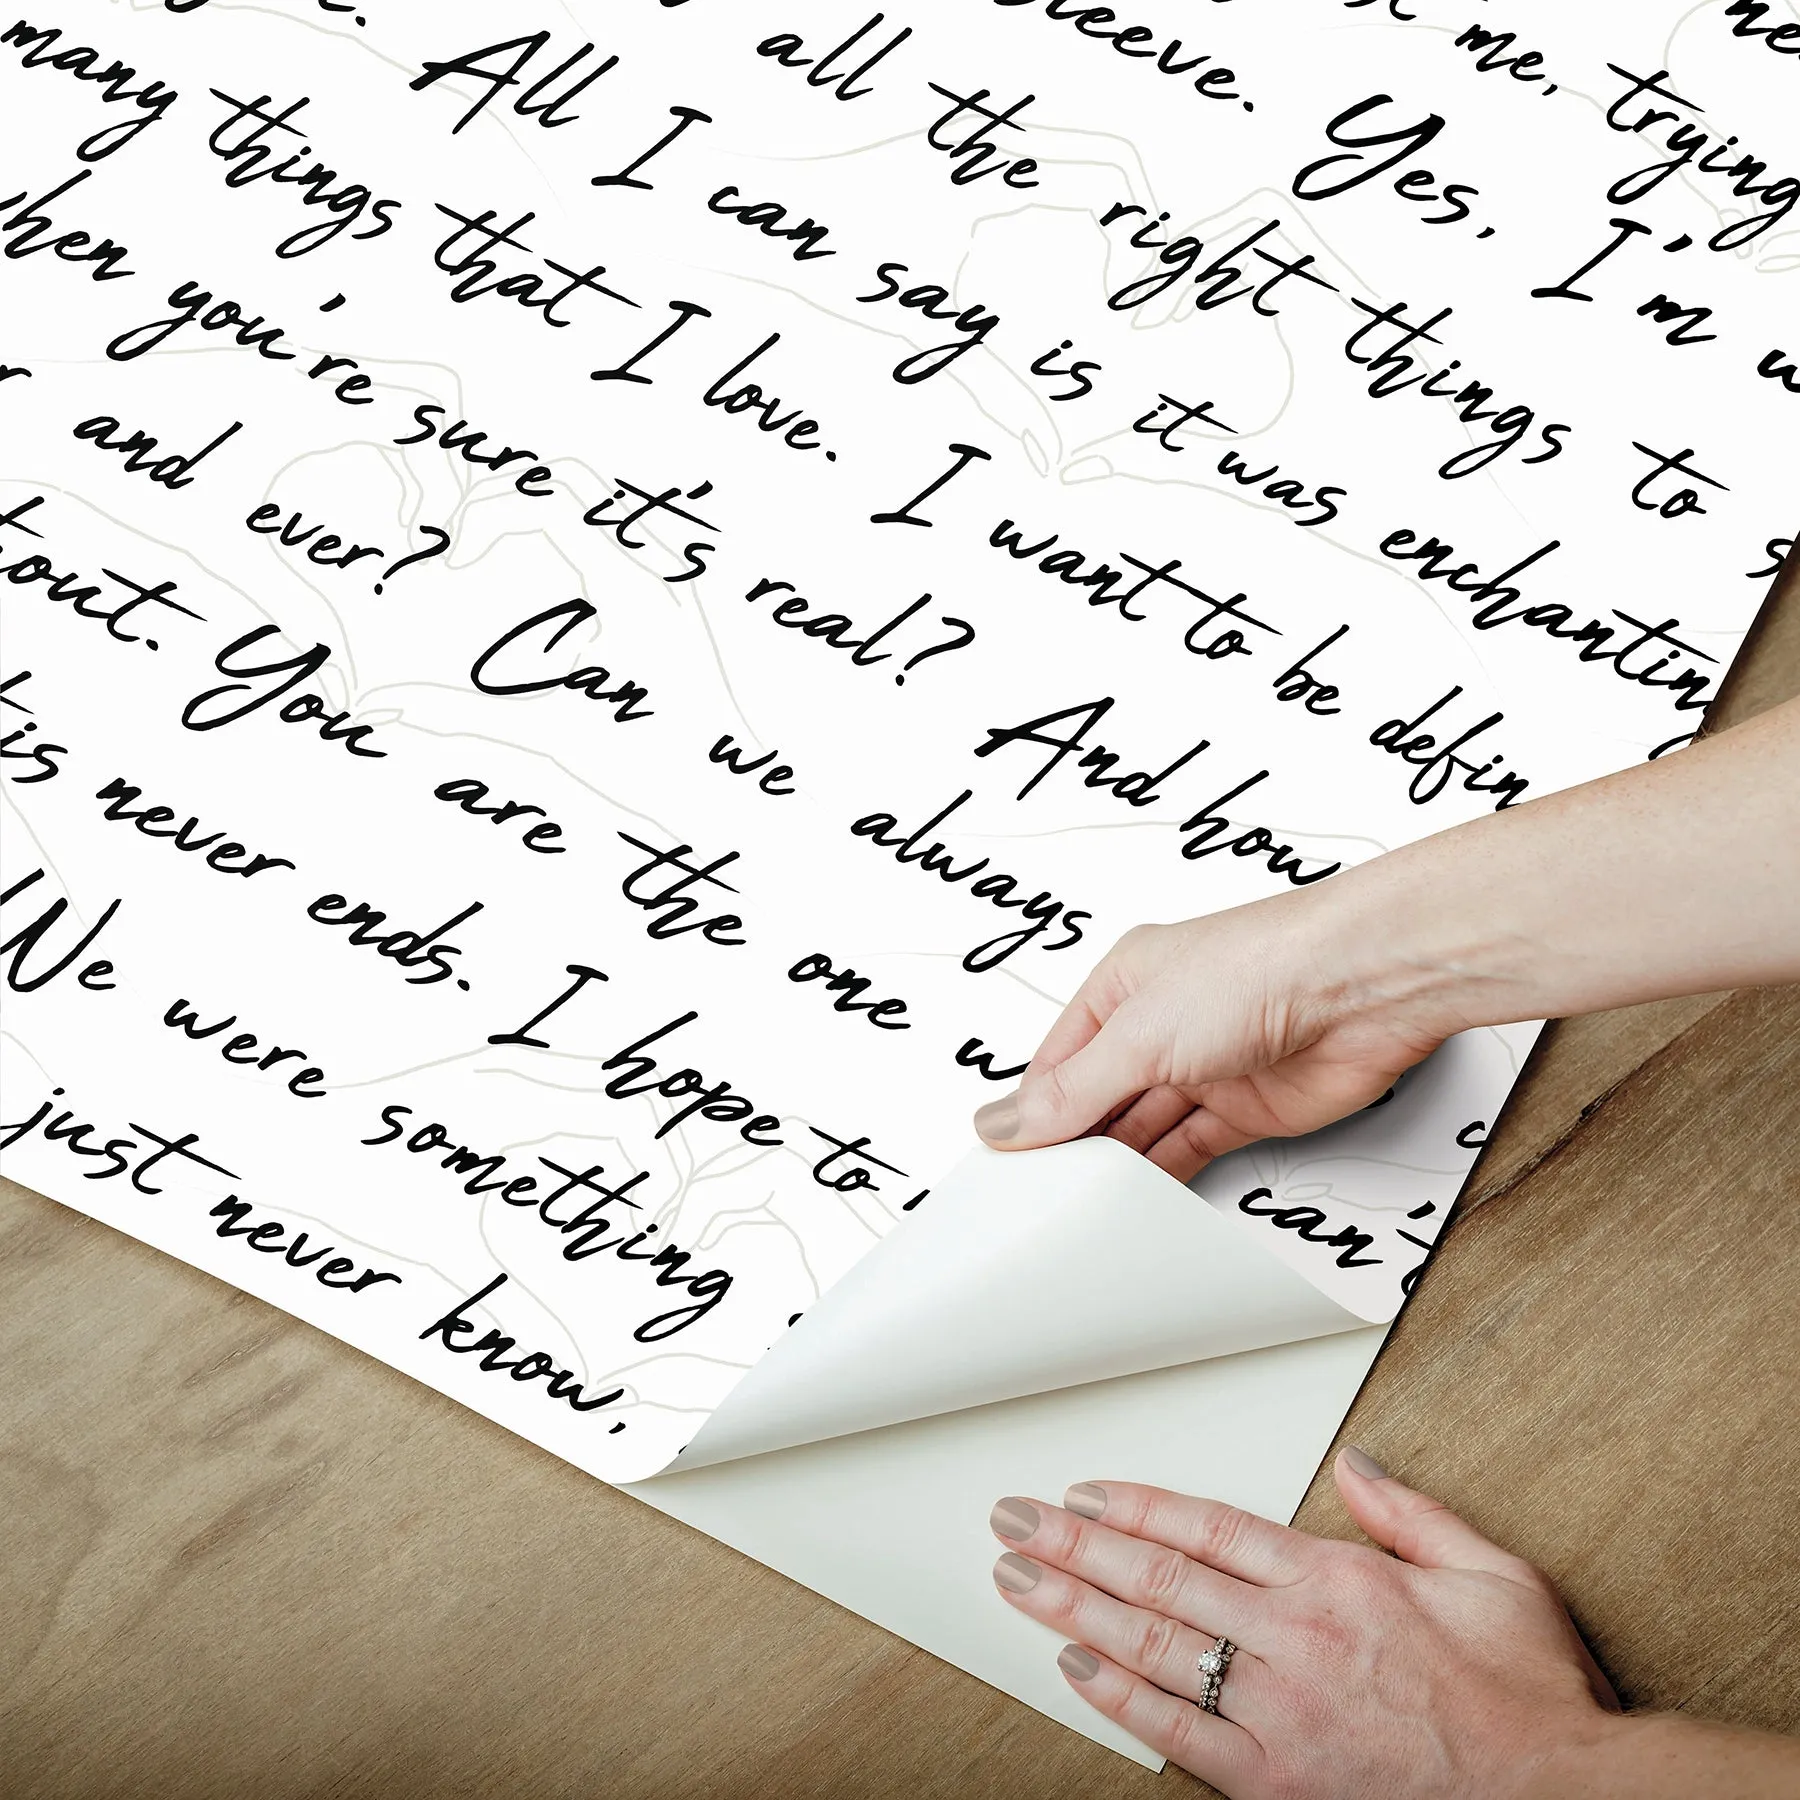 all the right things to
sleeve. Yes, I'm
me, trying
All I can say is it was enchanting
many things that I love. I want to be defin
when you're sure it's real? And how
and ever? Can we always
You are the one
this never ends. I hope to
We were something
can't
just never know,